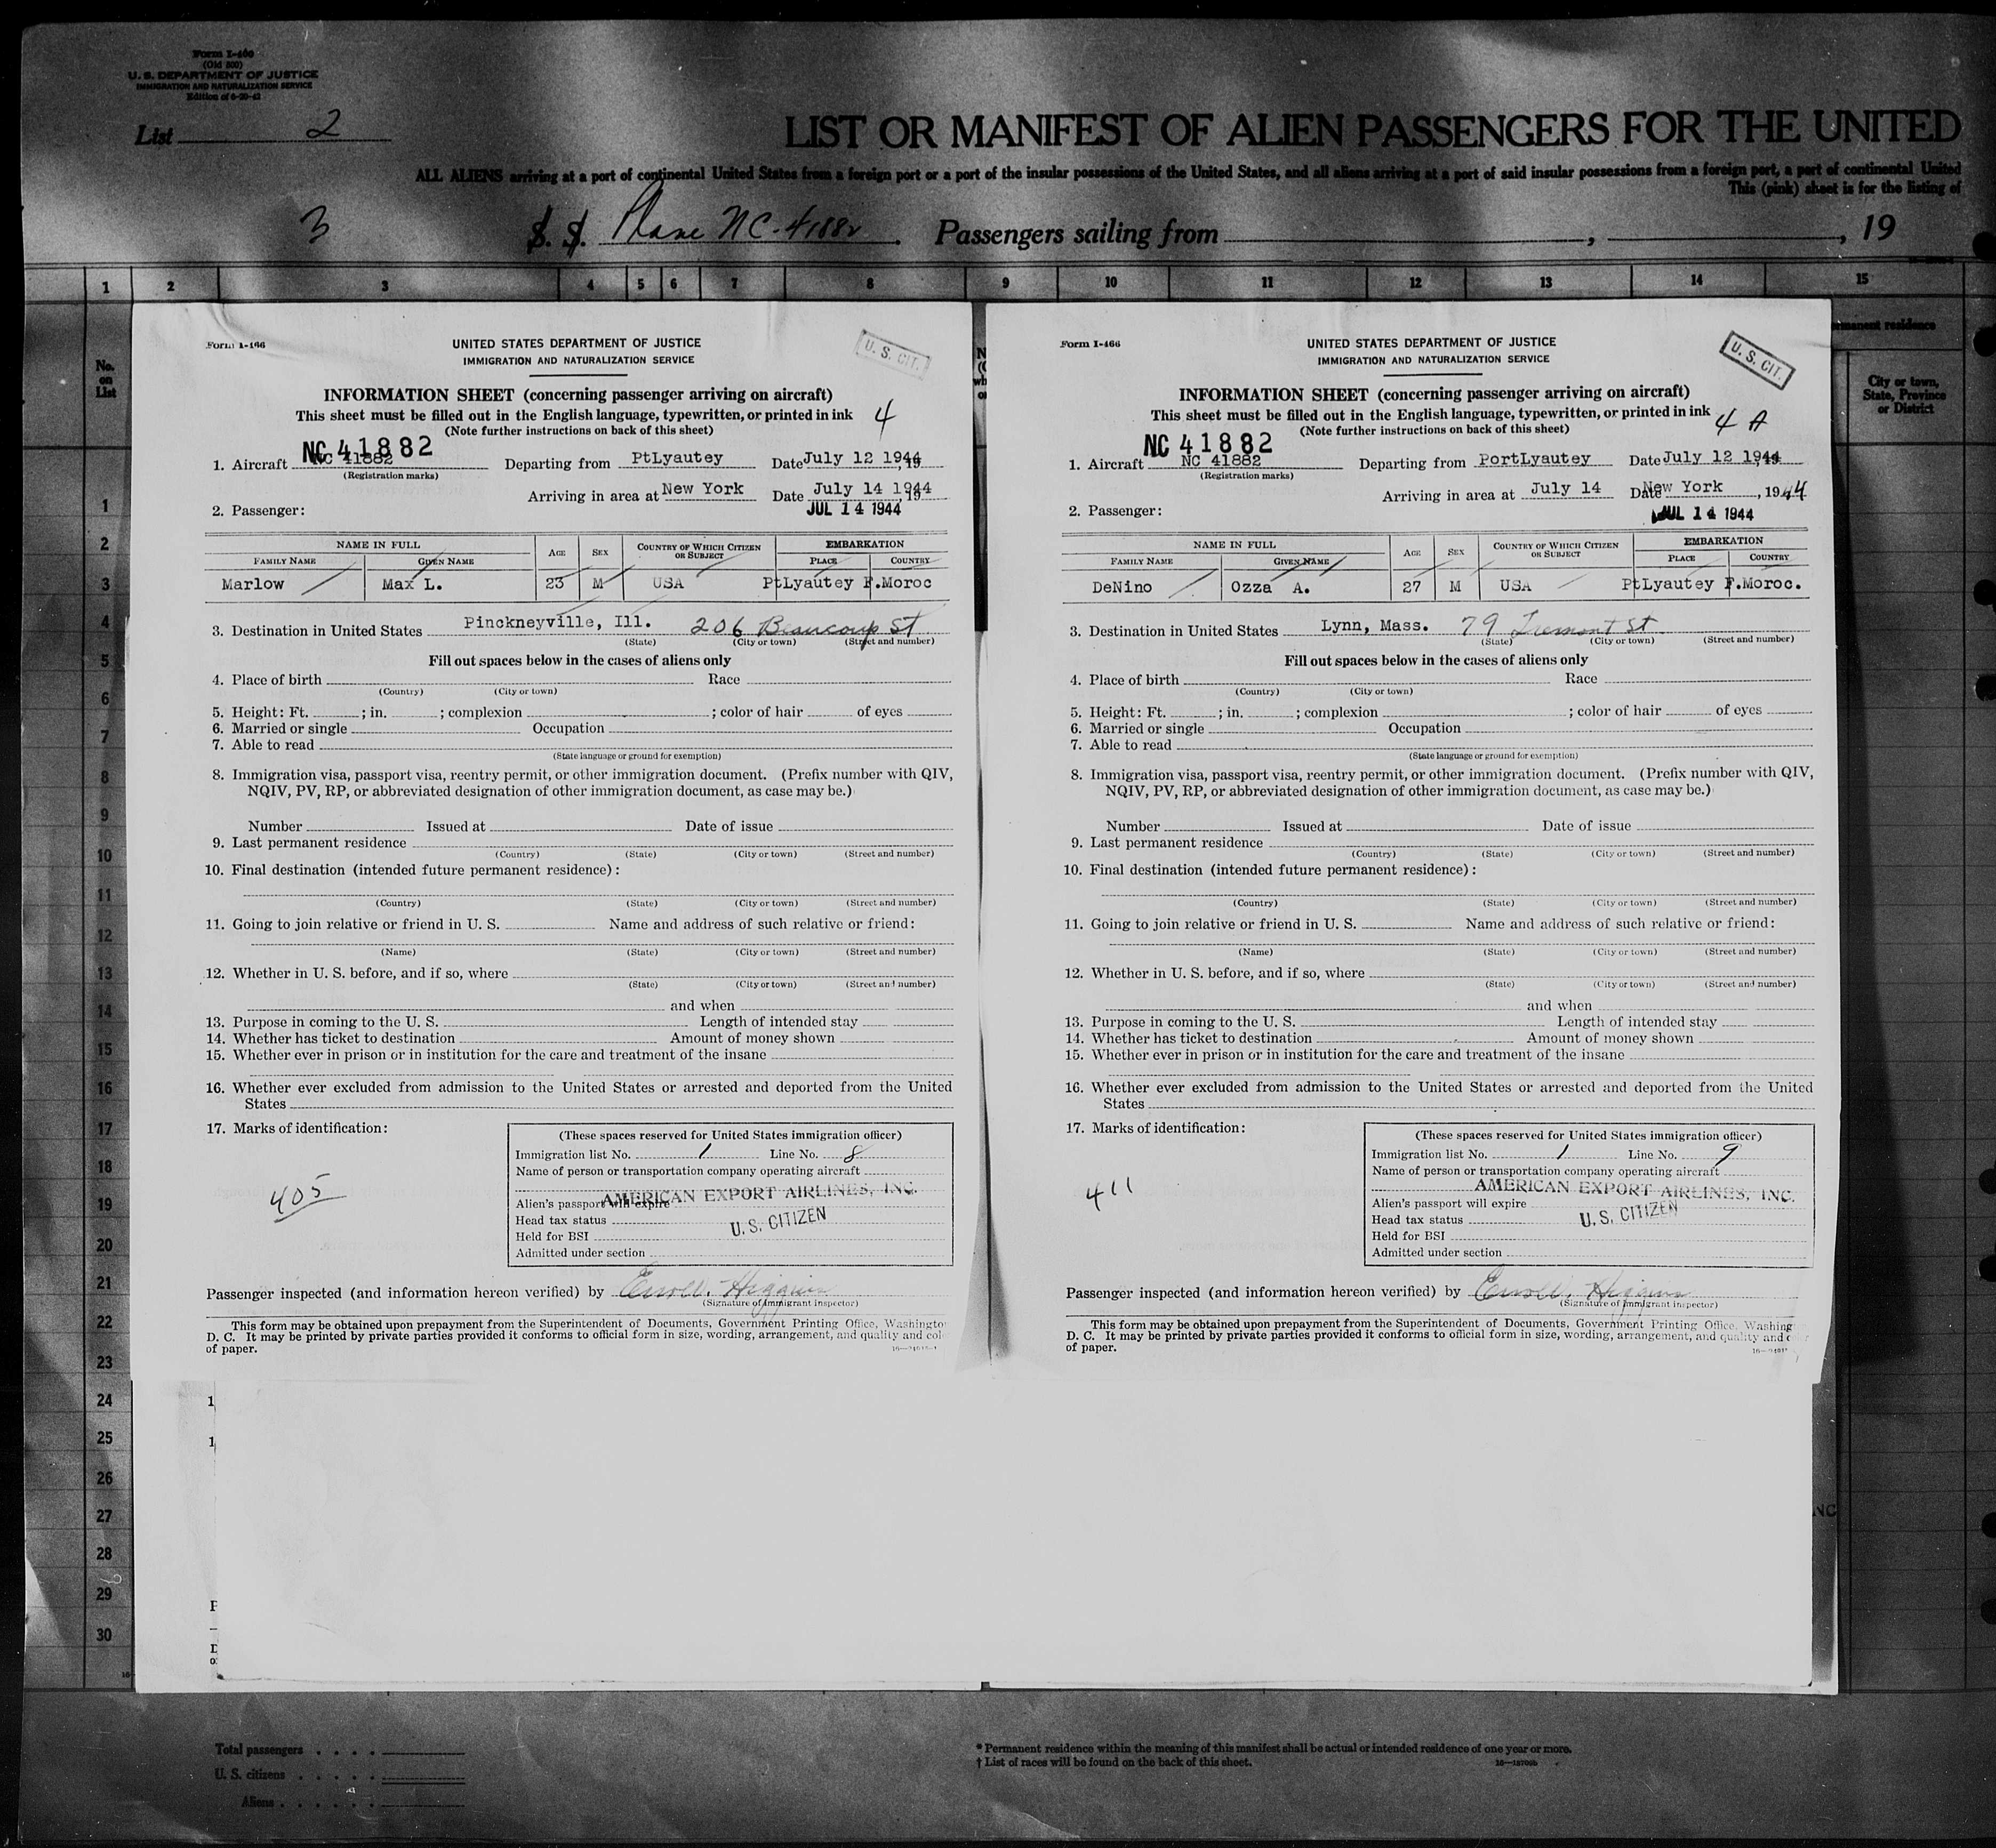 Form I-466
(Old 500)
U. S. DEPARTMENT OF JUSTICE
IMMIGRATION AND NATURALIZATION SERVICE
Edition of 6-20-42
List 2
LIST OR MANIFEST OF ALIEN PASSENGERS FOR THE UNITED
ALL ALIENS arriving at a port of continental United States from a foreign port or a port of the insular possessions of the United States, and all aliens arriving at a port of said insular possessions from a foreign port, a part of continental United
This (pink) sheet is for the listing of
3 S. S. Plane NC-41882 . Passengers sailing from , , 19
1 2 3 4 5 6 7 8 9 10 11 12 13 14 15
No. on List
manent residence
City or town, State, Province or District
1
2
3
4
5
6
7
8
9
10
11
12
13
14
15
16
17
18
19
20
21
22
23
24
25
26
27
28
29
30
Form I-466
UNITED STATES DEPARTMENT OF JUSTICE
IMMIGRATION AND NATURALIZATION SERVICE
U. S. CIT.
INFORMATION SHEET (concerning passenger arriving on aircraft)
This sheet must be filled out in the English language, typewritten, or printed in ink 4
(Note further instructions on back of this sheet)
NC 41882
1. Aircraft NC 41882 Departing from PtLyautey Date July 12 1944
(Registration marks)
Arriving in area at New York Date July 14 1944
2. Passenger: JUL 14 1944
NAME IN FULL AGE SEX COUNTRY OF WHICH CITIZEN OR SUBJECT EMBARKATION
FAMILY NAME GIVEN NAME PLACE COUNTRY
Marlow Max L. 23 M USA PtLyautey F.Moroc
3. Destination in United States Pinckneyville, Ill. 206 Beaucoup St
(State) (City or town) (Street and number)
Fill out spaces below in the cases of aliens only
4. Place of birth Race
(Country) (City or town)
5. Height: Ft. ; in. ; complexion ; color of hair of eyes
6. Married or single Occupation
7. Able to read
(State language or ground for exemption)
8. Immigration visa, passport visa, reentry permit, or other immigration document. (Prefix number with QIV,
NQIV, PV, RP, or abbreviated designation of other immigration document, as case may be.)
Number Issued at Date of issue
9. Last permanent residence
(Country) (State) (City or town) (Street and number)
10. Final destination (intended future permanent residence):
(Country) (State) (City or town) (Street and number)
11. Going to join relative or friend in U. S. Name and address of such relative or friend:
(Name) (State) (City or town) (Street and number)
12. Whether in U. S. before, and if so, where
(State) (City or town) (Street and number)
and when
13. Purpose in coming to the U. S. Length of intended stay
14. Whether has ticket to destination Amount of money shown
15. Whether ever in prison or in institution for the care and treatment of the insane
16. Whether ever excluded from admission to the United States or arrested and deported from the United
States
17. Marks of identification:
405
(These spaces reserved for United States immigration officer)
Immigration list No. 1 Line No. 8
Name of person or transportation company operating aircraft
AMERICAN EXPORT AIRLINES, INC.
Alien's passport will expire
Head tax status U. S. CITIZEN
Held for BSI
Admitted under section
Passenger inspected (and information hereon verified) by Higgins
(Signature of Immigrant inspector)
This form may be obtained upon prepayment from the Superintendent of Documents, Government Printing Office, Washingto
D. C. It may be printed by private parties provided it conforms to official form in size, wording, arrangement, and quality and col
of paper.
Form I-466
UNITED STATES DEPARTMENT OF JUSTICE
IMMIGRATION AND NATURALIZATION SERVICE
U. S. CIT.
INFORMATION SHEET (concerning passenger arriving on aircraft)
This sheet must be filled out in the English language, typewritten, or printed in ink 4 A
(Note further instructions on back of this sheet)
NC 41882
1. Aircraft NC 41882 Departing from PortLyautey Date July 12 1944
(Registration marks)
Arriving in area at July 14 Date New York , 1944
2. Passenger: JUL 14 1944
NAME IN FULL AGE SEX COUNTRY OF WHICH CITIZEN OR SUBJECT EMBARKATION
FAMILY NAME GIVEN NAME PLACE COUNTRY
DeNino Ozza A. 27 M USA PtLyautey F.Moroc.
3. Destination in United States Lynn, Mass. 79 Tremont St
(State) (City or town) (Street and number)
Fill out spaces below in the cases of aliens only
4. Place of birth Race
(Country) (City or town)
5. Height: Ft. ; in. ; complexion ; color of hair of eyes
6. Married or single Occupation
7. Able to read
(State language or ground for exemption)
8. Immigration visa, passport visa, reentry permit, or other immigration document. (Prefix number with QIV,
NQIV, PV, RP, or abbreviated designation of other immigration document, as case may be.)
Number Issued at Date of issue
9. Last permanent residence
(Country) (State) (City or town) (Street and number)
10. Final destination (intended future permanent residence):
(Country) (State) (City or town) (Street and number)
11. Going to join relative or friend in U. S. Name and address of such relative or friend:
(Name) (State) (City or town) (Street and number)
12. Whether in U. S. before, and if so, where
(State) (City or town) (Street and number)
and when
13. Purpose in coming to the U. S. Length of intended stay
14. Whether has ticket to destination Amount of money shown
15. Whether ever in prison or in institution for the care and treatment of the insane
16. Whether ever excluded from admission to the United States or arrested and deported from the United
States
17. Marks of identification:
411
(These spaces reserved for United States immigration officer)
Immigration list No. 1 Line No. 9
Name of person or transportation company operating aircraft
AMERICAN EXPORT AIRLINES, INC.
Alien's passport will expire
Head tax status U. S. CITIZEN
Held for BSI
Admitted under section
Passenger inspected (and information hereon verified) by Higgins
(Signature of Immigrant inspector)
This form may be obtained upon prepayment from the Superintendent of Documents, Government Printing Office, Washing
D. C. It may be printed by private parties provided it conforms to official form in size, wording, arrangement, and quality and
of paper.
NC
Total passengers . . . .
U. S. citizens . . . . .
Aliens . . . . . .
* Permanent residence within the meaning of this manifest shall be actual or intended residence of one year or more.
† List of races will be found on the back of this sheet.